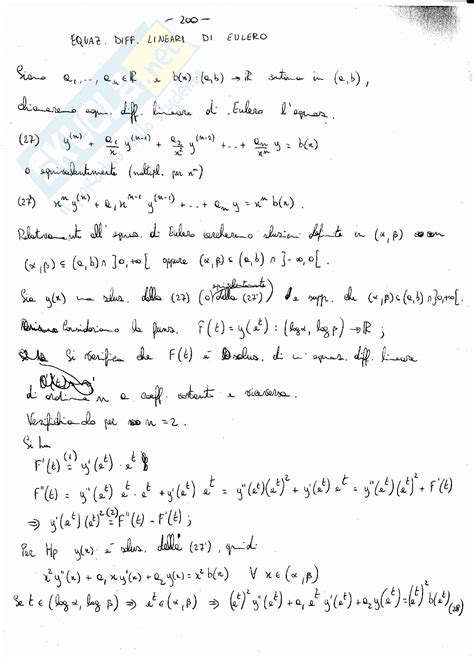 - 200 -
EQUAZ. DIFF. LINEARI DI EULERO
Siano a₁, ..., aₙ ∈ ℝ e b(x): (a,b) → ℝ continua in (a,b),
chiameremo equaz. diff. lineare di Eulero l'equaz.
(27) y⁽ⁿ⁾ + a₁/x y⁽ⁿ⁻¹⁾ + a₂/x² y⁽ⁿ⁻²⁾ + ... + aₙ/xⁿ y = b(x)
o equivalentemente (moltipl. per xⁿ)
(27') xⁿ y⁽ⁿ⁾ + a₁ xⁿ⁻¹ y⁽ⁿ⁻¹⁾ + ... + aₙ y = xⁿ b(x).
Relativamente all'equaz. di Eulero cercheremo soluzioni definite in (α,β) con
(α,β) ⊆ (a,b) ∩ ]0,+∞[ oppure (α,β) ⊆ (a,b) ∩ ]-∞,0[.
Sia y(x) una soluz. della (27) (o equivalentemente della (27')) e supp. che (α,β) ⊆ (a,b) ∩ ]0,+∞[.
Consideriamo la funz. F(t) = y(eᵗ): (log α, log β) → ℝ;
Si verifica che F(t) è soluz. di un'equaz. diff. lineare
di ordine n a coeff. costanti e viceversa.
Verifichiamolo per n = 2.
Si ha
F'(t) =⁽¹⁾ y'(eᵗ) · eᵗ
F''(t) = y''(eᵗ) eᵗ · eᵗ + y'(eᵗ) eᵗ = y''(eᵗ)(eᵗ)² + y'(eᵗ) eᵗ = y''(eᵗ)(eᵗ)² + F'(t)
⇒ y''(eᵗ)(eᵗ)² =⁽²⁾ F''(t) - F'(t);
Per Hp y(x) è soluz. della (27'), quindi
x² y''(x) + a₁ x y'(x) + a₂ y(x) = x² b(x) ∀ x ∈ (α,β)
Se t ∈ (log α, log β) ⇒ eᵗ ∈ (α,β) ⇒ (eᵗ)² y''(eᵗ) + a₁ eᵗ y'(eᵗ) + a₂ y(eᵗ) = (eᵗ)² b(eᵗ) (28)